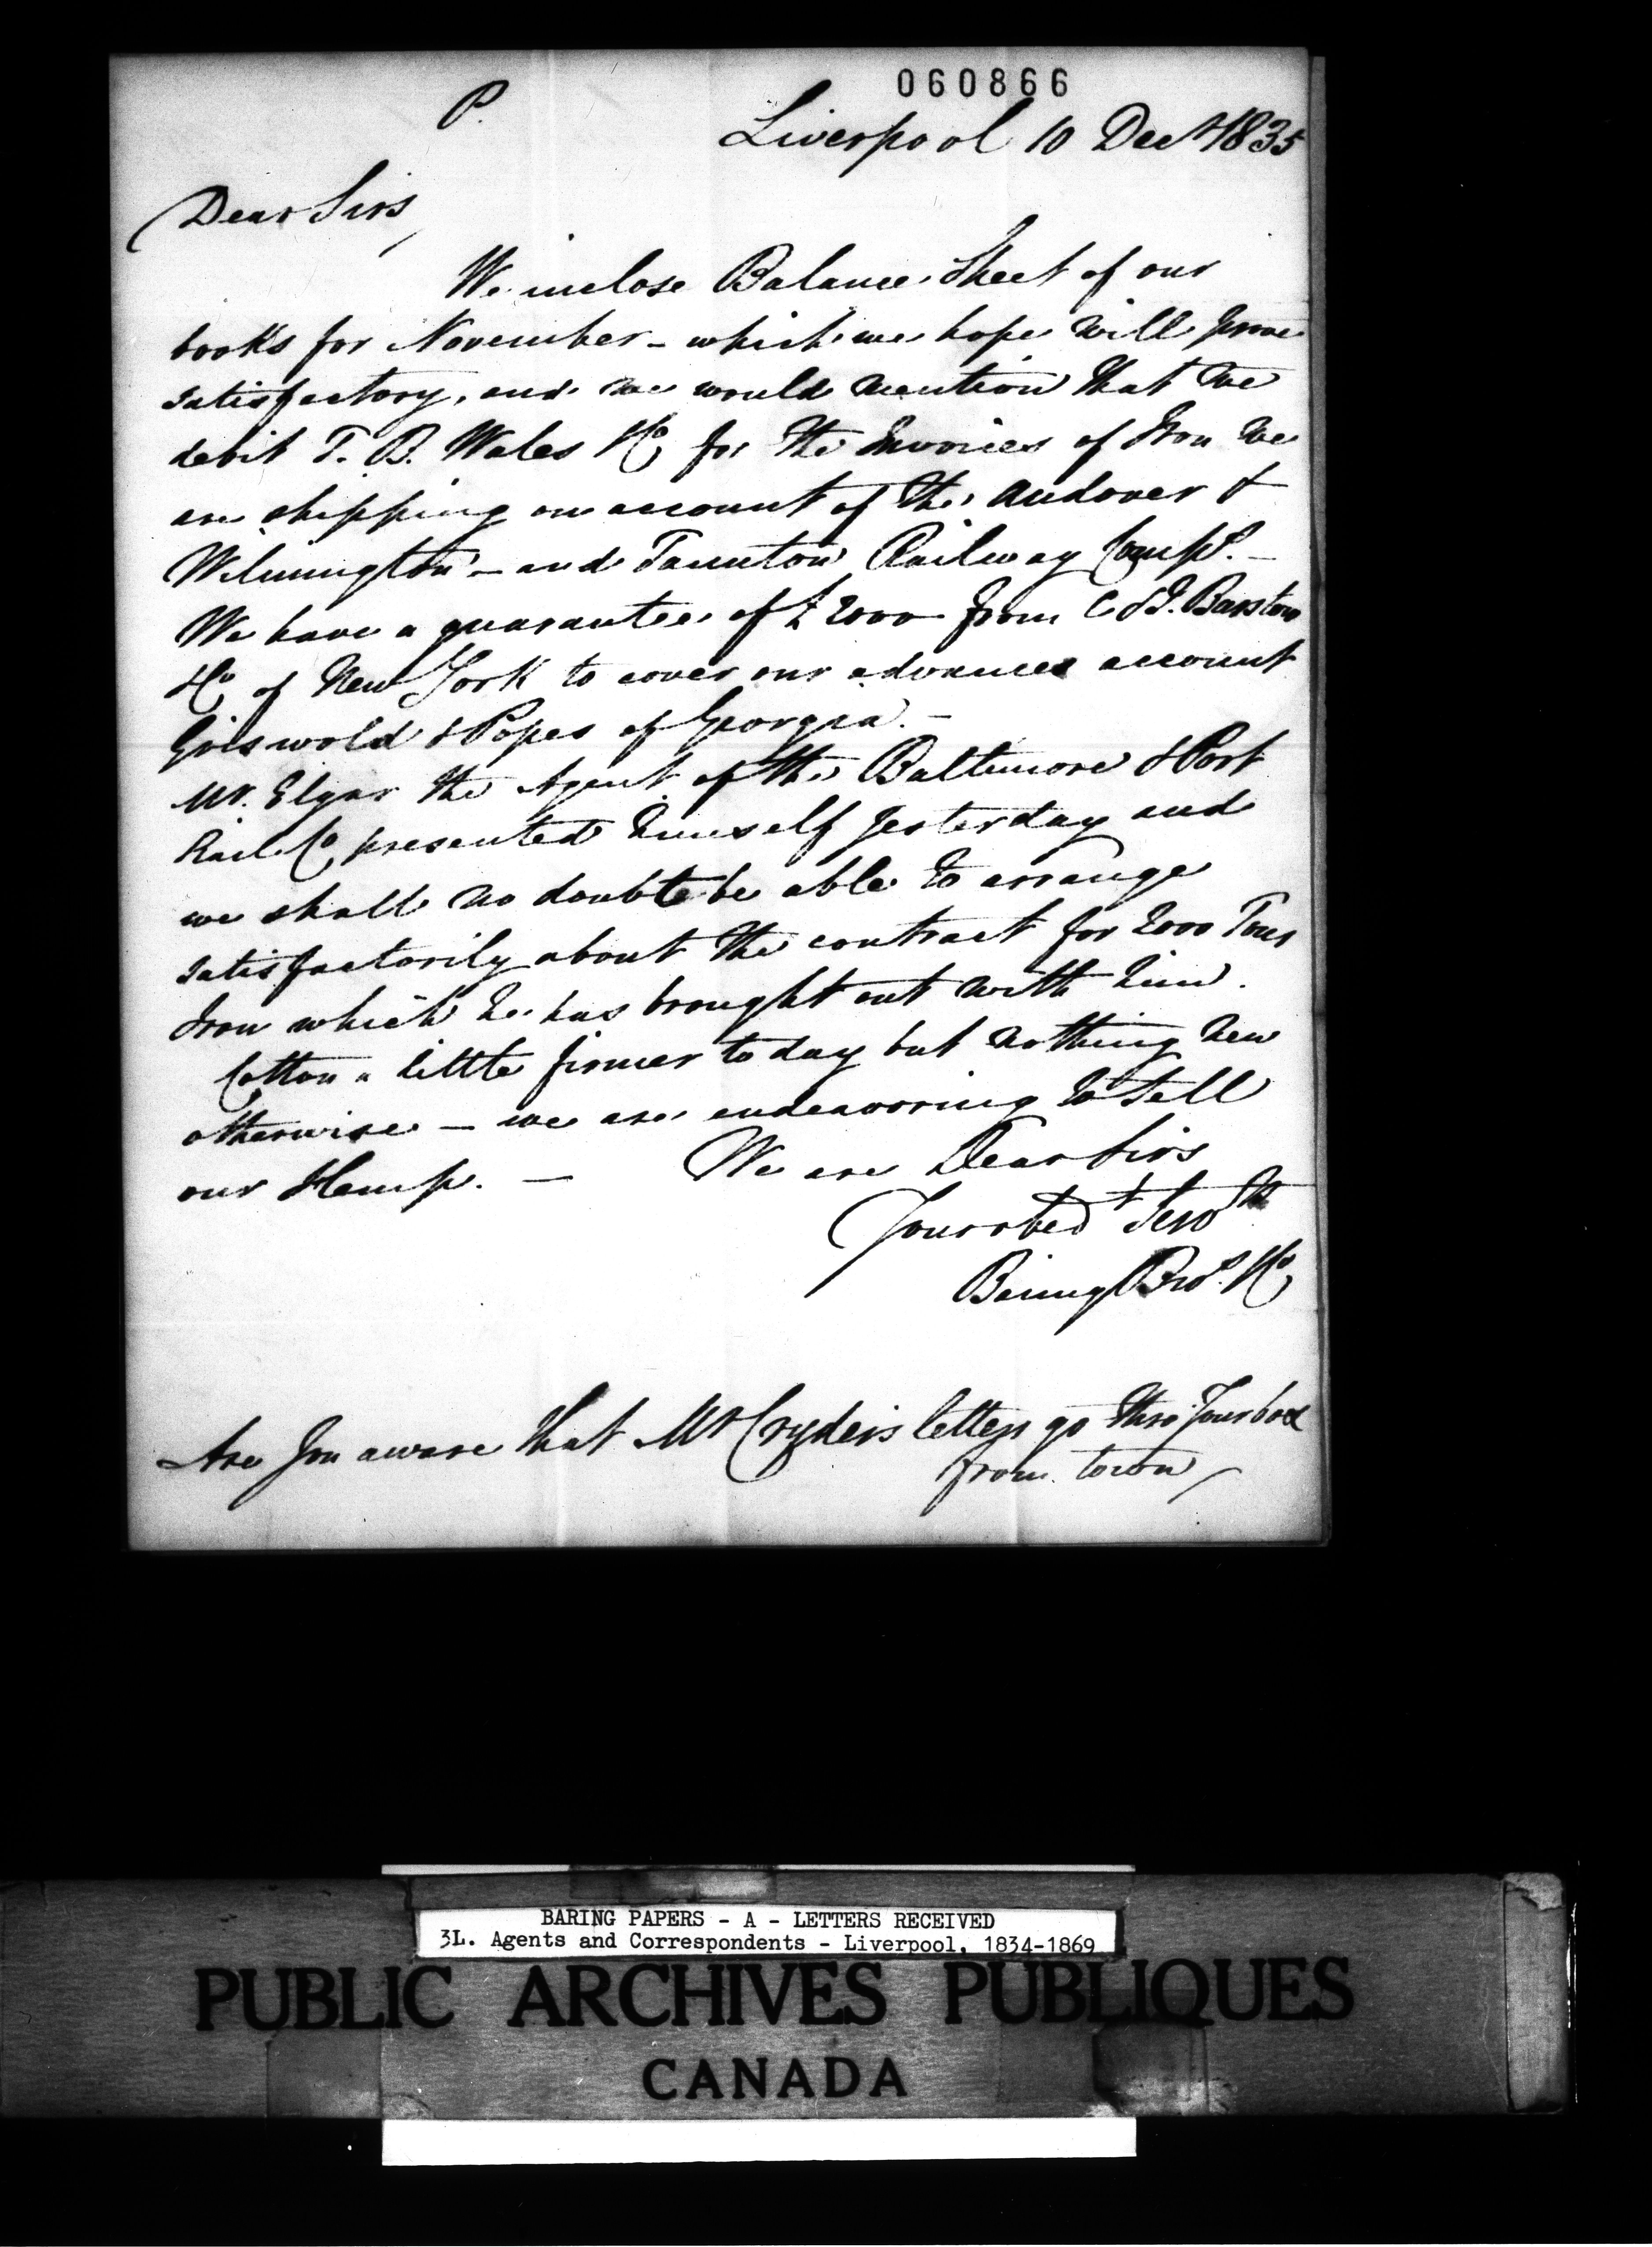 060866
P.
Liverpool 10 Decr 1835
Dear Sirs,
We inclose Balance Sheet of our
books for November - which we hope will prove
satisfactory, and we would mention that we
debit T. B. Wales &Co for the Invoices of Iron we
are shipping on account of the Andover &
Wilmington - and Taunton Railway Comps. -
We have a guarantee of £2000 from C & J. Barstow
&Co of New York to cover our advances account
Griswold & Popes of Georgia. -
Mr. Elgar the Agent of the Baltimore & Port
Rail. Co, presented himself yesterday and
we shall no doubt be able to arrange
satisfactorily about the contract for 2000 Tons
Iron which he has brought out with him.
Cotton a little firmer to day but nothing new
otherwise - we are endeavoring to sell
our Hemp. - We are Dear Sirs
Your obedt Servts
Baring Bros. &Co,
Are you aware that Mr Cryder's letters go thro' Your box
from town
BARING PAPERS - A - LETTERS RECEIVED
3L. Agents and Correspondents - Liverpool, 1834-1869
PUBLIC ARCHIVES PUBLIQUES
CANADA